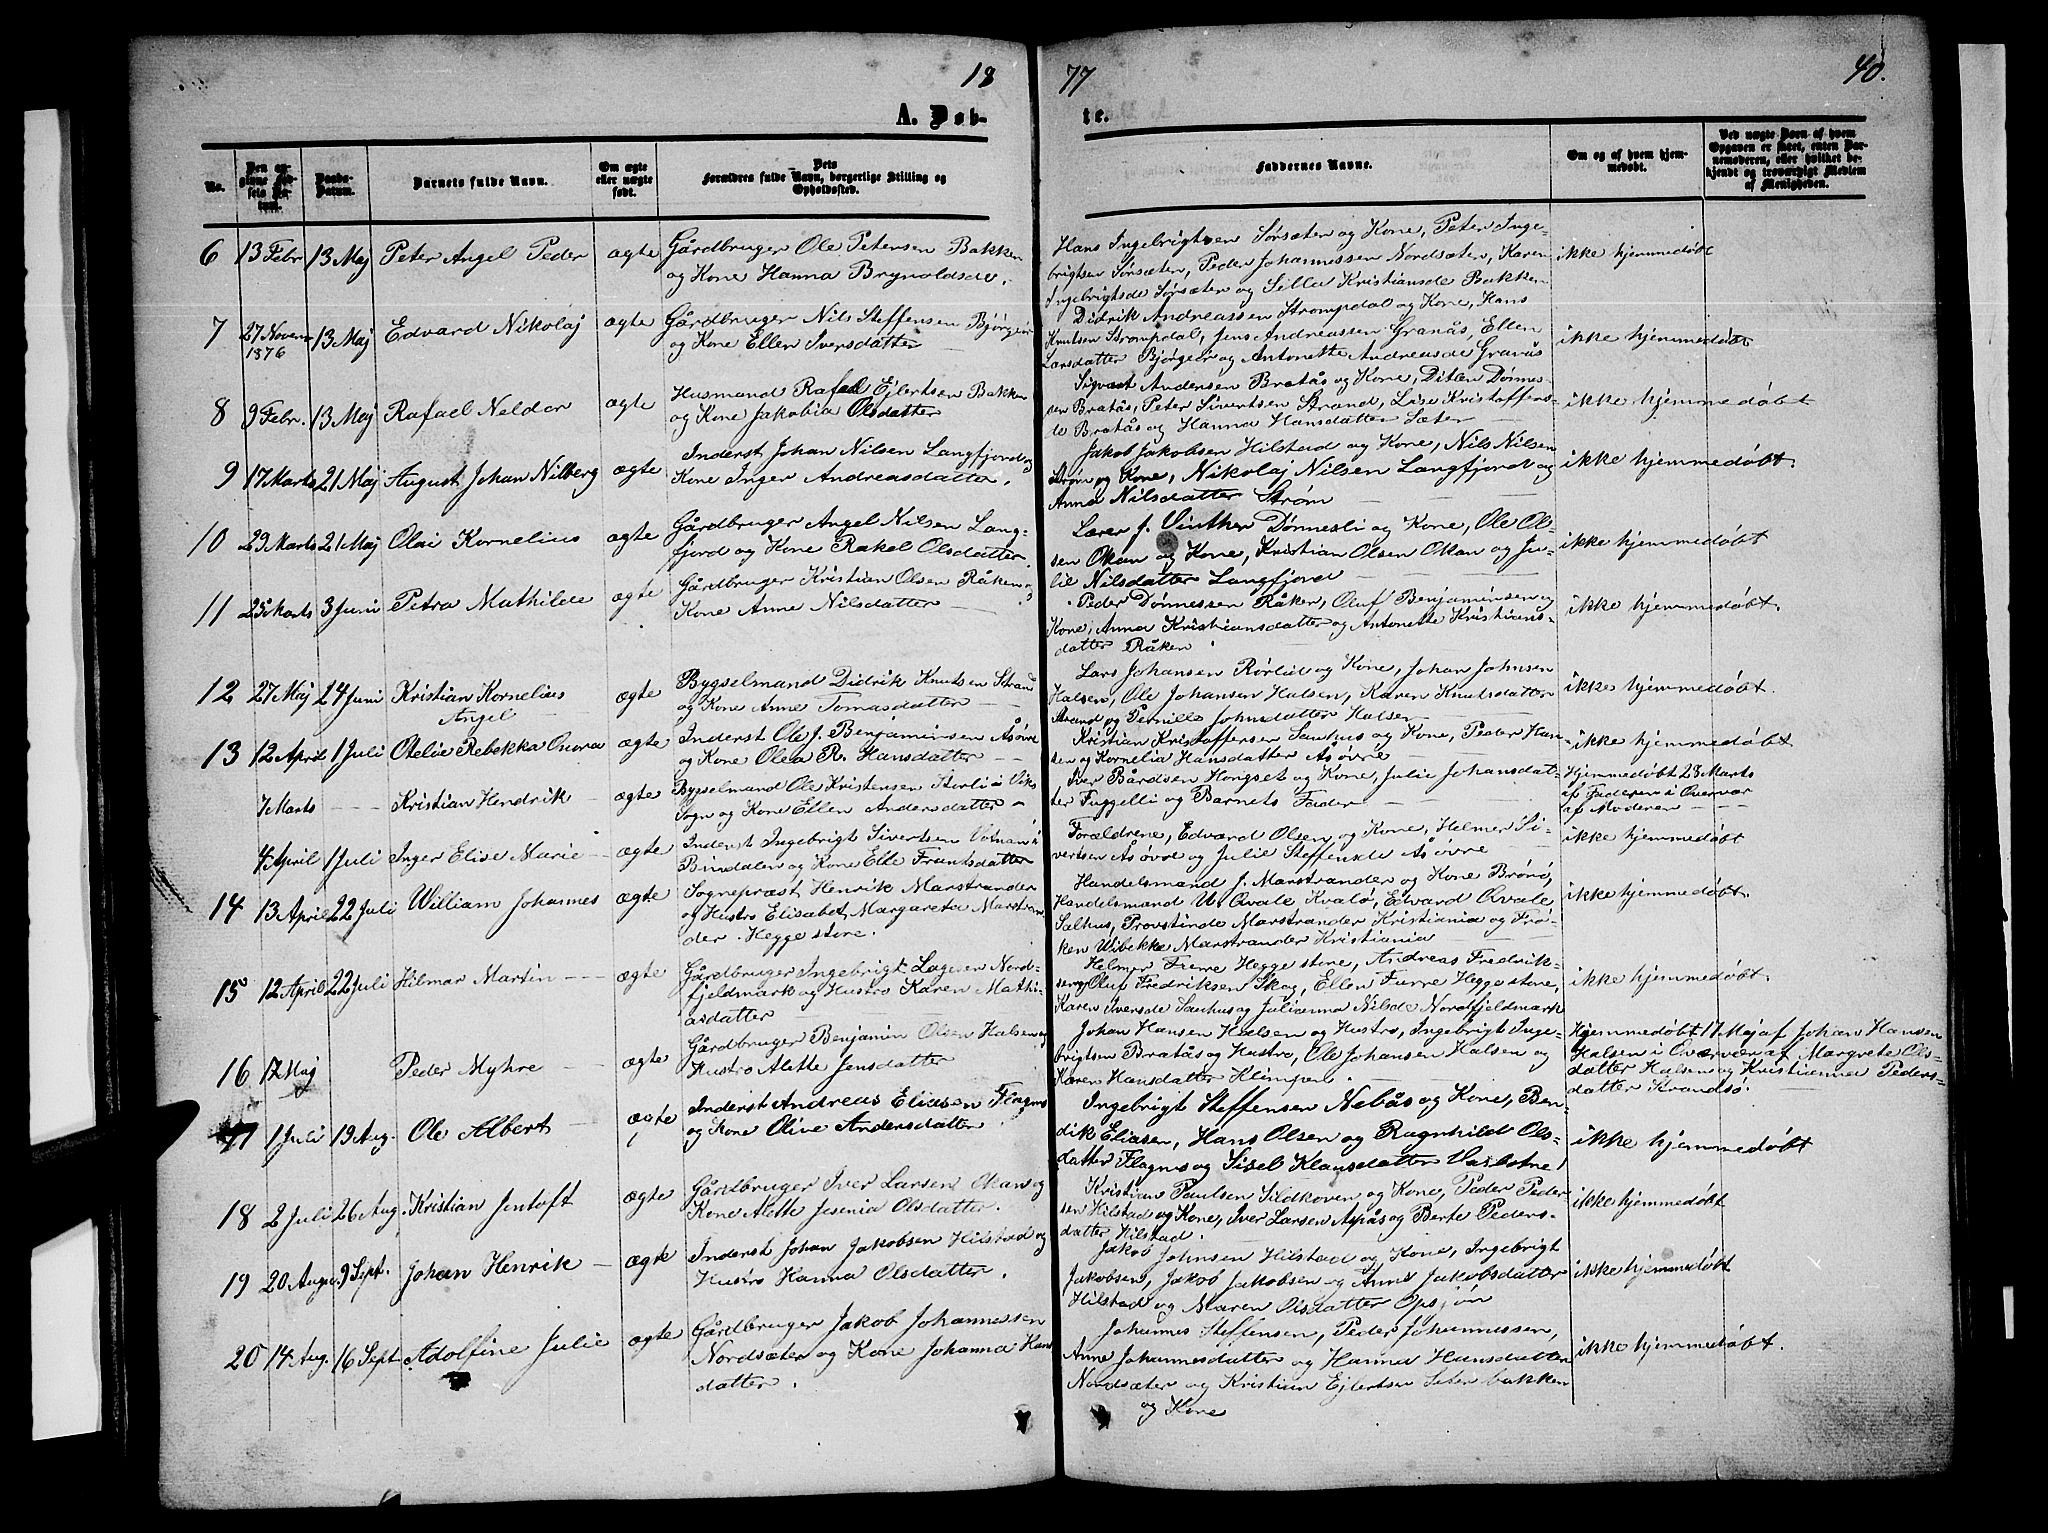 18
77
40.
A. Døb-
te.
No.
Den angivne Fødsels Datum.
Daabs-Datum.
Barnets fulde Navn.
Om ægte eller uægte født.
Dets
Forældres fulde Navn, borgerlige Stilling og
Opholdssted.
Faddernes Navne.
Om og af hvem hjem-
medøbt.
Ved uægte Børn af hvem
Opgaven er skeet, enten Bar-
nemoderen, eller hvilket be-
kjendt og troværdigt Medlem
af Menigheden.
6 13 Febr. 13 Maj Peter Angel Peder ægte Gårdbruger Ole Petersen Bakken
og Kone Hanna Brynoldsde.
Hans Ingebrigtsen Sørsæter og Kone, Peter Inge-
brigtsen Sørsæter, Peder Johannessen Nordsæter, Karen
Ingebrigtsde Sørsæter og Silla Kristiansde Bakken
ikke hjemmedøbt
7 27 Novem 1876 13 Maj Edvard Nikolaj ægte Gårdbruger Nils Steffensen Bjørgeir
og Kone Ellen Iversdatter
Didrik Andreassen Strompdal og Kone, Hans
Knutsen Strompdal, Jens Andreassen Granås, Ellen
Larsdatter Bjørgeir og Antonette Andreasde Granås
ikke hjemmedøbt
8 9 Febr. 13 Maj Rafael Neldor ægte Husmand Rafael Ejlertsen Bakken
og Kone Jakobia Olsdatter
Sigvart Andersen Bratås og Kone, Ditlev Dønnes-
sen Bratås, Peter Sivertsen Strand, Lise Kristoffers-
de Bratås og Hanna Hansdatter Sæter
ikke hjemmedøbt
9 17 Marts 21 Maj August Johan Nilberg ægte Inderst Johan Nilsen Langfjord og
Kone Inger Andreasdatter.
Jakob Jakobsen Hilstad og Kone, Nils Nilsen
Strøm og Kone, Nikolaj Nilsen Langfjord og
Anna Nilsdatter Strøm
ikke hjemmedøbt.
10 29 Marts 21 Maj Olai Kornelius ægte Gårdbruger Angel Nilsen Lang-
fjord og Kone Rakel Olsdatter.
Lærer J. Vinther Dønnesli og Kone, Ole Ol-
sen Okan og Kone, Kristian Olsen Okan og Ju-
lie Nilsdatter Langfjord
ikke hjemmedøbt
11 25 Marts 3 Juni Petra Mathilde ægte Gårdbruger Kristian Olsen Råken og
Kone Anne Nilsdatter
Peder Dønnessen Råken, Oluf Benjaminsen og
Kone, Anna Kristiansdatter og Antonette Kristians-
datter Råken
ikke hjemmedøbt.
12 27 Maj 24 Juni Kristian Kornelius
Angel
ægte Bygselmand Didrik Knutsen Strand
og Kone Anne Tomasdatter
Lars Johansen Rørlid og Kone, Johan Johnsen
Halsen, Ole Johansen Halsen, Karen Knutsdatter
Strand og Pernille Johnsdatter Halsen
ikke hjemmedøbt.
13 12 April 1 Juli Otelie Rebekka Onora ægte Inderst Ole J. Benjaminsen Åsøvre
og Kone Olea R. Hansdatter
Kristian Kristoffersen Sauhus og Kone, Peder Han-
sen og Kornelia Hansdatter Åsøvre
ikke hjemmedøbt
7 Marts Kristian Hendrik ægte Bygselmand Ole Kristensen Storli i Viks
Sogn og Kone Ellen Andersdatter
Iver Bårdsen Horsgset og Kone, Julie Johansdat-
ter Fuggelli og Barnets Fader
Hjemmedøbt 28 Marts
af Faderen i Overvær
af Moderen
4 April 1 Juli Inger Elise Marie ægte Inderst Ingebrigt Sivertsen i
Bindalen og Kone Elle Frantsdatter
Forældrene, Edvard Olsen og Kone, Helmer Si-
vertsen Åsøvre og Julie Steffensde Åsøvre
ikke hjemmedøbt
14 13 April 22 Juli William Johannes ægte Sognepræst Henrik Marstrander
og Hustro Elisabet Margareta Marstran-
der Heggestere.
Handelsmand J. Marstrander og Kone Brønø,
Handelsmand U. Qvale Kvalø, Edvard Qvale
Salhus, Provstinde Marstrander Kristiania og Frø-
ken Wibekke Marstrander Kristiania
ikke hjemmedøbt
15 12 April 22 Juli Hilmar Martin ægte Gårdbruger Ingebrigt Lagesen Nord-
fjeldmark og Hustro Karen Mathi-
asdatter
Helmer Furre Heggestere, Andreas Fredrik-
sen, Oluf Fredriksen Skog, Ellen Furre Heggestere,
Karen Iversde Sauhus og Julianna Nilsde Nordfjeldmark
ikke hjemmedøbt
16 12 Maj Peder Myhre ægte Gårdbruger Benjamin Olsen Halsen og
Hustro Alette Jensdatter
Johan Hansen Halsen og Hustro, Ingebrigt Inge-
brigtsen Bratås og Hustro, Ole Johansen Halsen og
Karen Hansdatter Klimpen.
Hjemmedøbt 17 Maj af Johan Hansen
Halsen i Overvær af Margrete Ols-
datter Halsen og Kristianna Peders-
datter Krandsø.
17 1 Juli 19 Aug. Ole Albert ægte Inderst Andreas Eliasen Flagnes
og Kone Olive Andersdatter.
Ingebrigt Steffensen Nebås og Kone, Ben-
dik Eliasen, Hans Olsen og Ragnhild Ols-
datter Flagnes og Sisel Klausdatter
ikke hjemmedøbt
18 2 Juli 26 Aug. Kristian Jentoft ægte Gårdbruger Iver Larsen Okan og
Kone Alette Jesenia Olsdatter.
Kristian Paulsen Sildkoven og Kone, Peder Peder-
sen Hilstad og Kone, Iver Larsen Aspås og Berte Peders-
datter Hilstad.
ikke hjemmedøbt
19 20 Augu. 9 Sept. Johan Henrik ægte Inderst Johan Jakobsen Hilstad og
Hustro Hanna Olsdatter.
Jakob Johnsen Hilstad og Kone, Ingebrigt
Jakobsen, Jakob Jakobsen og Anne Jakobsdatter
Hilstad og Maren Olsdatter Opsjøn
ikke hjemmedøbt
20 14 Aug. 16 Sept. Adolfine Julie ægte Gårdbruger Jakob Johannessen
Nordsæter og Kone Johanna Hans
datter.
Johannes Steffensen, Peder Johannessen,
Anne Johannesdatter og Hanna Hansdatter
Nordsæter og Kristian Ejlertsen Seterbakken
og Kone
ikke hjemmedøbt.